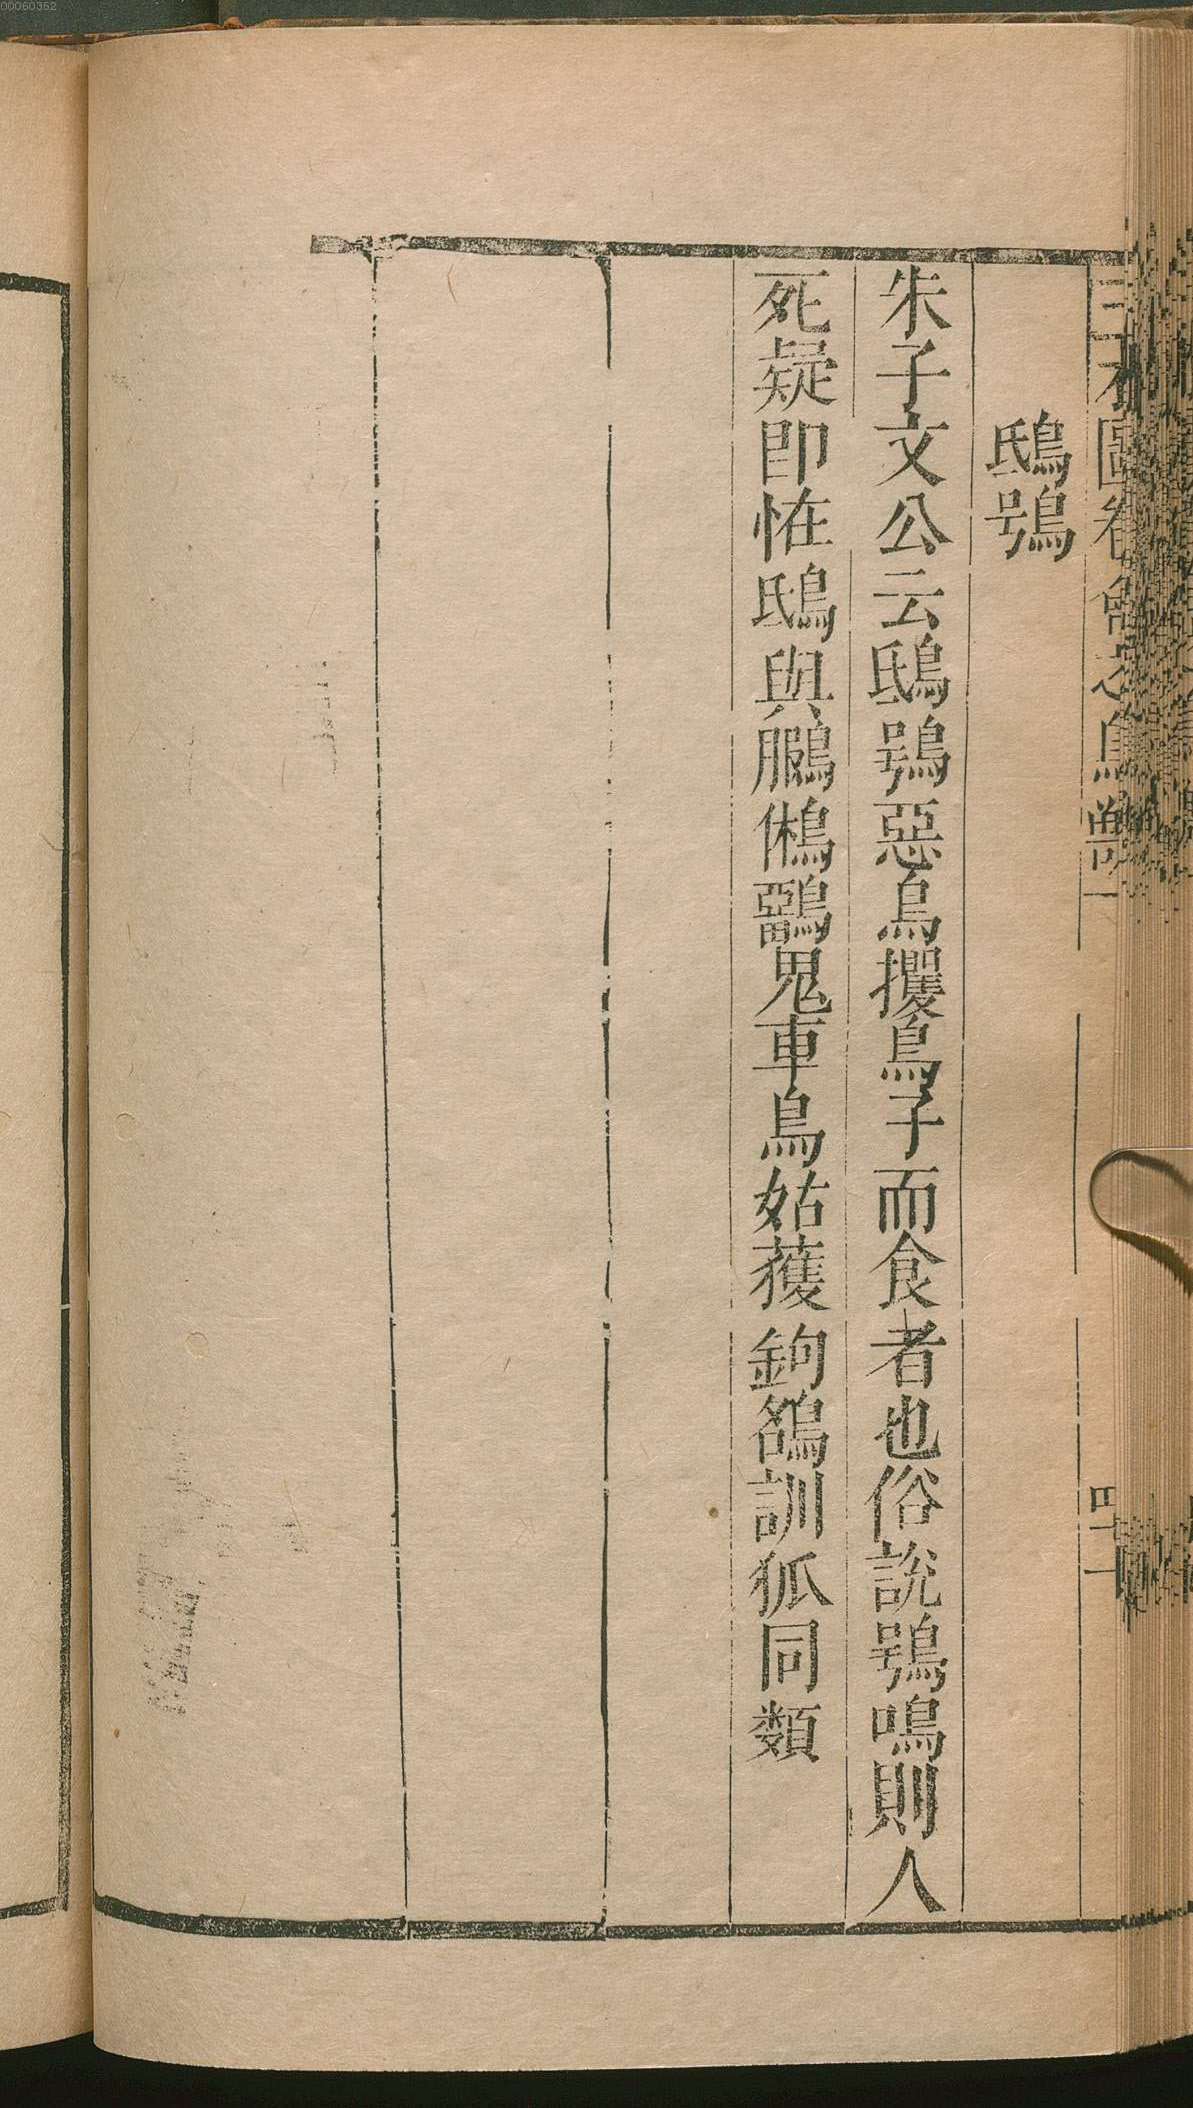 00060352
鴟鴞
朱子文公云鴟鴞惡鳥攫鳥子而食者也俗説鴞鳴則人
死疑即恠鴟與鵩鵂鶹鬼車鳥姑獲鉤鵅訓狐同類
圖卷會之鳥獸一
四十一